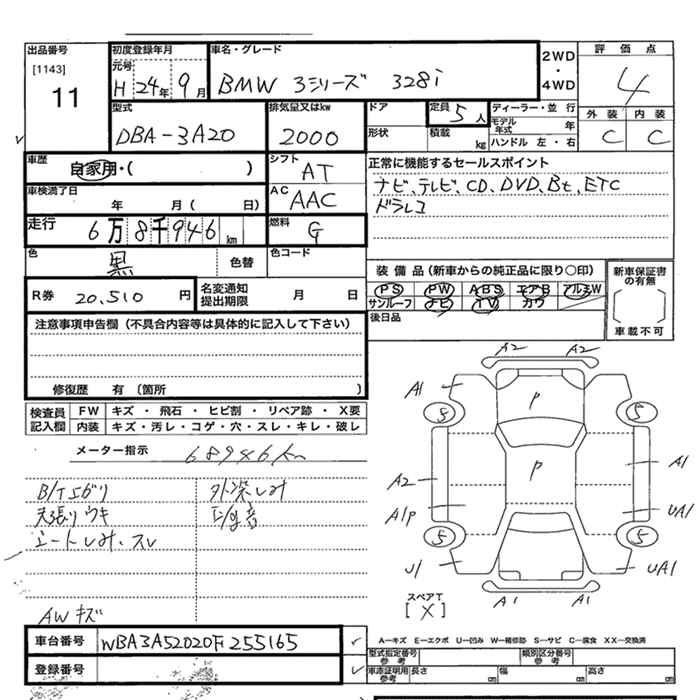 出品番号
[1143]
11
初度登録年月
元号
H 24年 9月
車名・グレード
BMW 3シリーズ 328i
2WD
・
4WD
評価点
4
外装 内装
C C
型式
DBA-3A20
排気量又はkw
2000
ドア
形状
定員 5人
積載 kg
ディーラー・並行
モデル年式 年
ハンドル 左・右
車歴
自家用・( )
シフト
AT
車検満了日
年 月( 日)
AC
AAC
正常に機能するセールスポイント
ナビ、テレビ、CD、DVD、Bt、ETC
ドラレコ
走行
6万8千946km
燃料
G
色
黒
色替
色コード
R券 20,510 円
名変通知
提出期限
月 日
装備品(新車からの純正品に限り○印)
PS PW ABS エアB アルミW
サンルーフ ナビ TV カワ
後日品
新車保証書
の有無
車載不可
注意事項申告欄(不具合内容等は具体的に記入して下さい)
修復歴 有(箇所 )
検査員
記入欄
FW キズ・飛石・ヒビ割・リペア跡・X要
内装 キズ・汚レ・コゲ・穴・スレ・キレ・破レ
メーター指示 68946km
天張りウキ
シートしみ・スレ
AWキズ
A2 A2
A1
S S
P
P
A2 A1
A1P UA1
S S
U1 UA1
A1 A1
スペアT
[X]
A—キズ E—エクボ U—凹み W—補修跡 S—サビ C—腐食 XX—交換済
車台番号 WBA3A52020F255165
登録番号
型式指定番号
参考
類別区分番号
参考
車庫証明用
参考
長さ cm 幅 cm 高さ cm